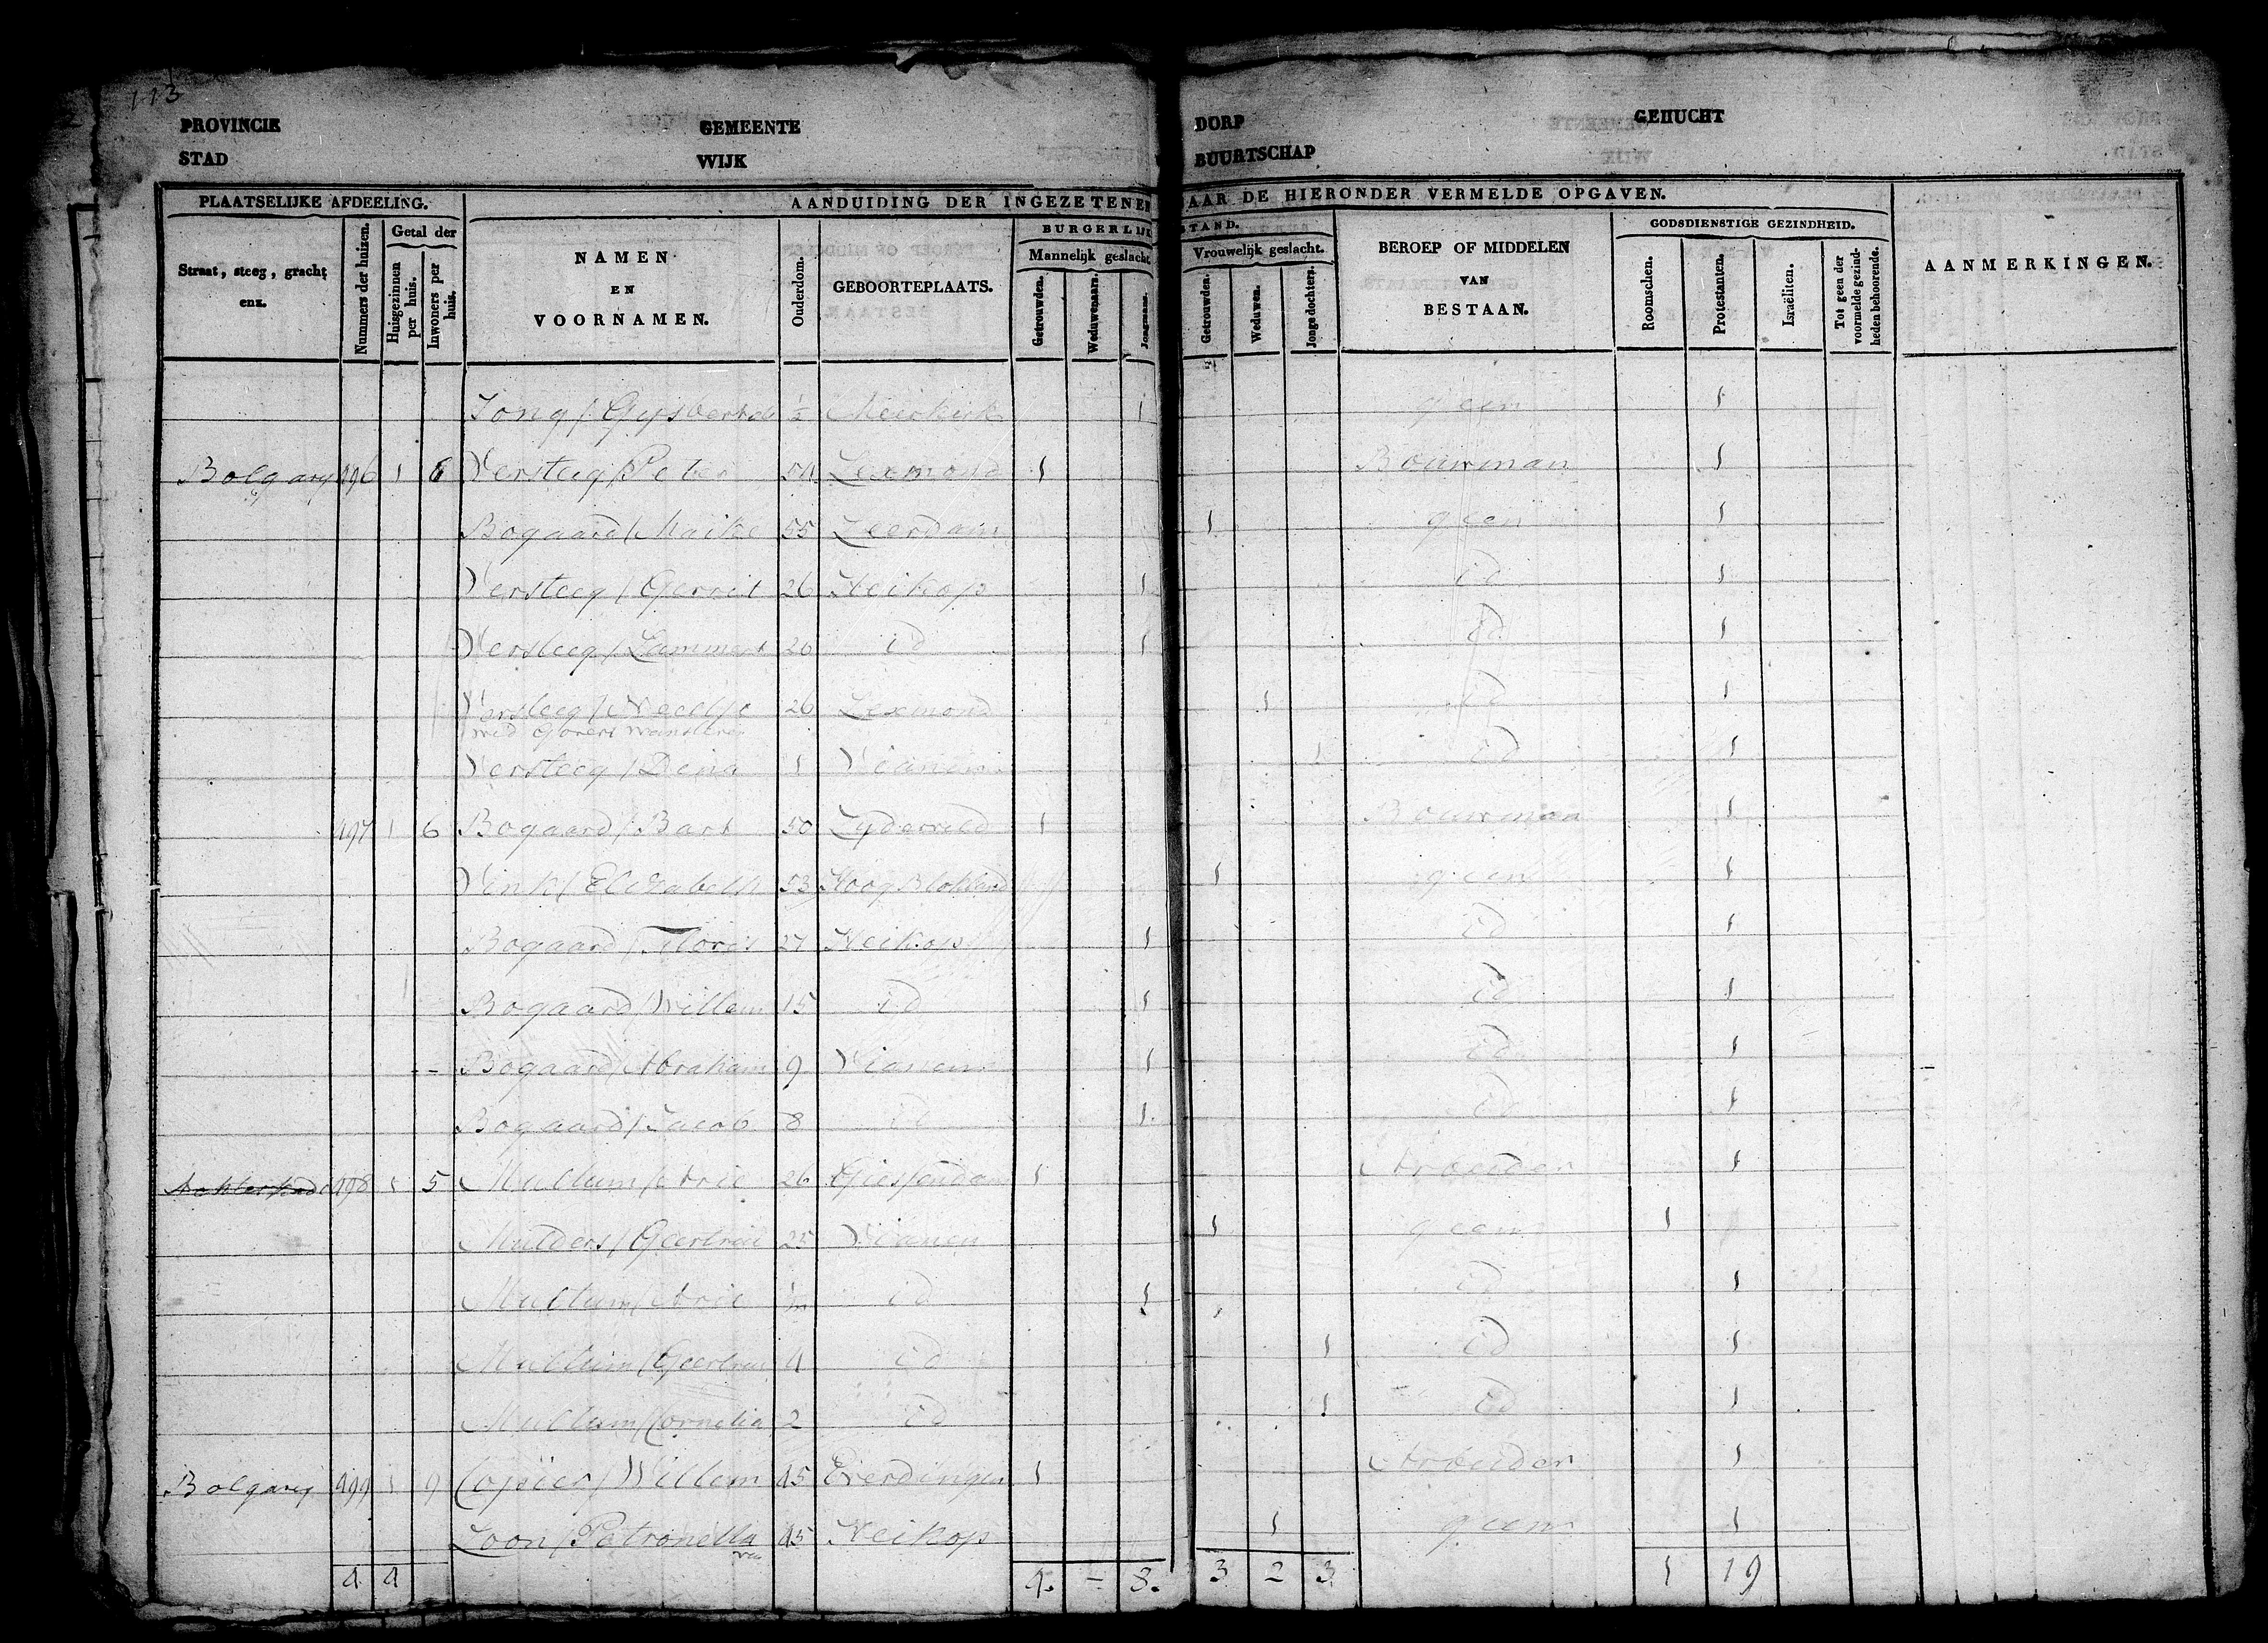 113
PROVINCIE GEMEENTE DORP GEHUCHT
STAD WIJK BUURTSCHAP
PLAATSELIJKE AFDEELING. AANDUIDING DER INGEZETENEN AAR DE HIERONDER VERMELDE OPGAVEN.
Straat, steeg, gracht enz. Nummers der huizen. Getal der Huisgezinnen per huis. Inwoners per huis. NAMEN EN VOORNAMEN. Ouderdom. GEBOORTEPLAATS. BURGERLIJK STAND. Mannelijk geslacht. Getrouwden. Weduwenaars. Jongmans. Vrouwelijk geslacht. Getrouwden. Weduwen. Jonge dochters. BEROEP OF MIDDELEN VAN BESTAAN. GODSDIENSTIGE GEZINDHEID. Roomschen. Protestanten. Israëliten. Tot geen der voormelde gezindheden behoorende. AANMERKINGEN.
Jong / Gysbert de ½ Meerkerk 1 geen 1
Bolgary 496 1 6 Versteeg / Peter 50 Lexmond 1 Bouwman 1
Bogaard / Maike 55 Leerdam 1 geen 1
Versteeg / Gerrit 26 Heikop 1 id 1
Versteeg / Lammert 26 id 1 id 1
Versteeg / Neeltje 26 Lexmond 1 id 1
wed Govert
Versteeg / Dena 1 Vianen 1 id 1
497 1 6 Bogaard / Bart 50 Zyderveld 1 Bouwman 1
Vink / Elizabeth 53 Hoog Blokland 1 geen 1
Bogaard / Floris 27 Heikop 1 id 1
Bogaard / Willem 15 id 1 id 1
Bogaard / Abraham 9 Vianen 1 id 1
Bogaard / Jacob 8 id 1 id 1
Achterkade 498 1 5 Mullum / Arie 26 Giessendam 1 Arbeider 1
Mulders / Geertrui 25 Vianen 1 geen 1
Mullum / Arie id 1 id 1
Mullum / Geertrui 4 id 1 id 1
Mullum / Cornelia 2 id 1 id 1
Bolgary 499 1 9 Copier / Willem 45 Everdingen 1 Arbeider 1
Loon / Patronella van 45 Heikop 1 geen 1
4 4 4. - 8. 3 2 3 1 19